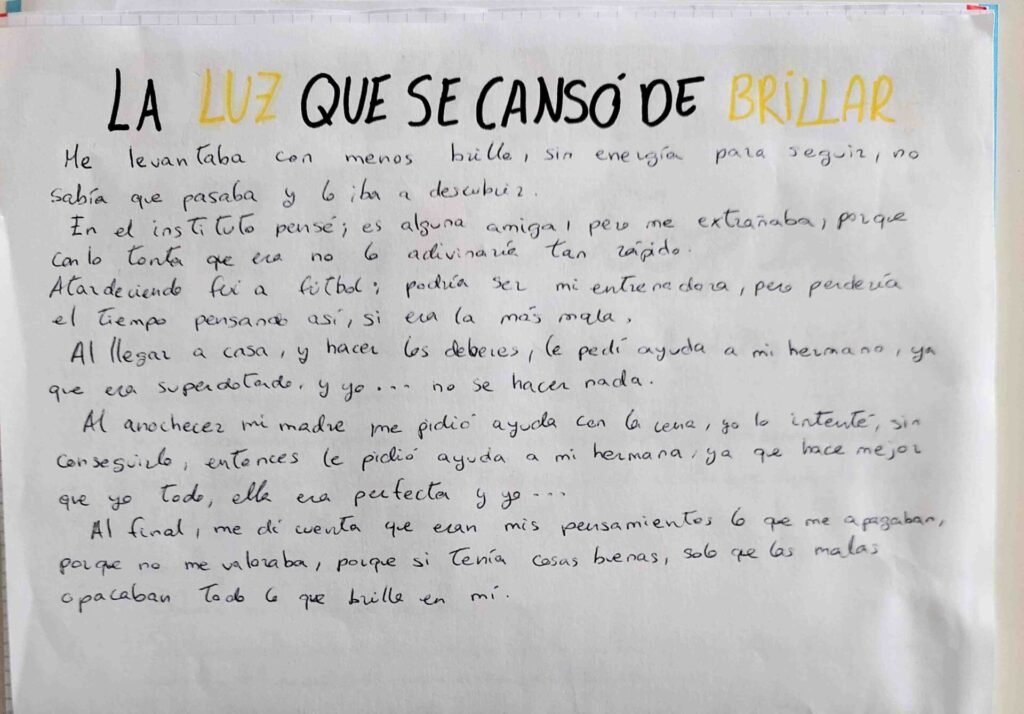 LA LUZ QUE SE CANSÓ DE BRILLAR
Me levantaba con menos brillo, sin energía para seguir, no
sabía que pasaba y lo iba a descubrir.
En el instituto pensé; es alguna amiga, pero me extrañaba, porque
con lo tonta que era no lo adivinaría tan rápido.
Atardeciendo fui a fútbol; podría ser mi entrenadora, pero perdería
el tiempo pensando así, si era la más mala.
Al llegar a casa, y hacer los deberes, le pedí ayuda a mi hermano, ya
que era superdotado, y yo... no se hacer nada.
Al anochecer mi madre me pidió ayuda con la cena, yo lo intenté, sin
conseguirlo, entonces le pidió ayuda a mi hermana, ya que hace mejor
que yo todo, ella era perfecta y yo...
Al final, me di cuenta que eran mis pensamientos lo que me apagaban,
porque no me valoraba, porque si tenía cosas buenas, solo que las malas
opacaban todo lo que brilla en mí.